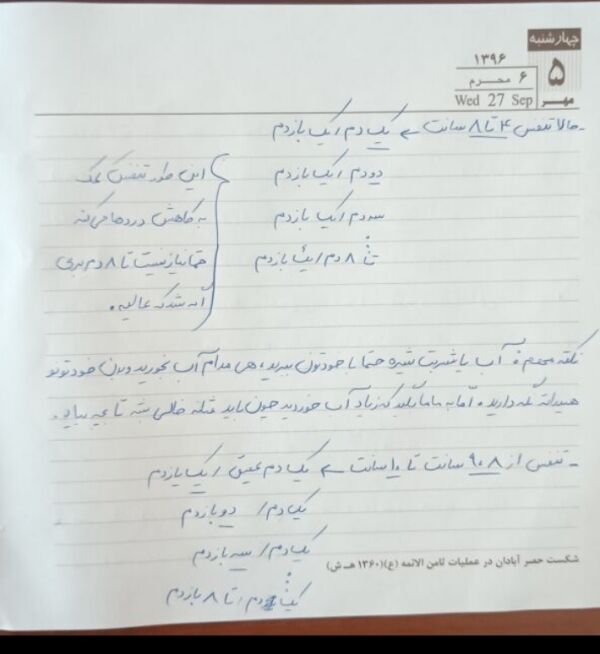 چهارشنبه
۵
مهر
۱۳۹۶
۶ محرم
Wed 27 Sep
- حالا تنفس ۴ تا ۸ سانت ← یک دم / یک بازدم
دو دم / یک بازدم
سه دم / یک بازدم
تا ۸ دم / یک بازدم
این طور تنفس کمک
به کاهش درد ها می‌کنه
حتما نیاز نیست تا ۸ دم ببری
اگه شد که عالیه.
نکته مهم: آب یا شربت شیره حتما با خودتون ببرید، هی مدام آب بخورید و بدن خودتونو
هیدراته نگه دارید. اما به ماما بگید که زیاد آب خوردید چون باید مثانه خالی بشه تا بچه بیاد.
- تنفس از ۸، ۹ سانت تا ۱۰ سانت ← یک دم عمیق / یک بازدم
یک دم / دو بازدم
یک دم / سه بازدم
یک دم / تا ۸ بازدم
شکست حصر آبادان در عملیات ثامن الائمه (ع) (۱۳۶۰ هـ ش)